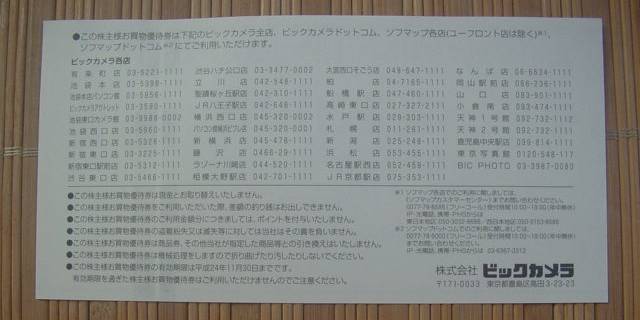 ●この株主様お買物優待券は下記のビックカメラ全店、ビックカメラドットコム、ソフマップ各店(ユーフロント店は除く)※1、
ソフマップドットコム※2にてご利用いただけます。
ビックカメラ各店
有楽町店 03-5221-1111 渋谷ハチ公口店 03-3477-0002 大宮西口そごう店 048-647-1111 なんば店 06-6634-1111
池袋本店 03-5396-1111 立川店 042-548-1111 柏店 04-7165-1111 岡山駅前店 086-236-1111
池袋本店パソコン館 03-5956-1111 聖蹟桜ヶ丘駅店 042-310-1111 船橋駅店 047-460-1111 山口店 083-901-1111
ビックカメラアウトレット 03-3590-1111 JR八王子駅店 042-646-1111 高崎東口店 027-327-2111 小倉南店 093-474-1111
池袋東口カメラ館 03-3988-0002 横浜西口店 045-320-0002 水戸駅店 029-303-1111 天神1号館 092-732-1112
池袋西口店 03-5960-1111 パソコン館横浜ビブレ店 045-320-0001 札幌店 011-261-1111 天神2号館 092-732-1111
新宿西口店 03-5326-1111 新横浜店 045-478-1111 新潟店 025-248-1111 鹿児島中央駅店 099-814-1111
新宿東口店 03-3225-1111 藤沢店 0466-29-1111 浜松店 053-455-1111 東京写真館 0120-548-117
新宿東口駅前店 03-5312-1111 ラゾーナ川崎店 044-520-1111 名古屋駅西店 052-459-1111 BIC PHOTO 03-3987-0080
渋谷東口店 03-5466-1111 相模大野駅店 042-701-1111 JR京都駅店 075-353-1111
●この株主様お買物優待券は現金とお取り替えいたしません。
●この株主様お買物優待券をご利用いただいた際、差額の釣り銭はお出しできません。
●この株主様お買物優待券のご利用金額分につきましては、ポイントを付与いたしません。
●この株主様お買物優待券の盗難紛失又は滅失等に対しては当社はその責を負いません。
●この株主様お買物優待券は商品券、その他当社が指定した商品等との引き換えはいたしません。
●この株主様お買物優待券は機械処理をしますので折り曲げたり汚したりしないでください。
●この株主様お買物優待券の有効期限は平成24年11月30日までです。
有効期限を過ぎた株主様お買物優待券はご利用いただけませんのでご注意ください。
※1 ソフマップ各店でのご利用に関しましては、
(ソフマップカスタマーセンター)までお問い合わせください。
IP・光電話、携帯・PHSからは
※2 ソフマップドットコムでのご利用に関しましては、
IP・光電話、携帯・PHSからは 03-6367-3312
株式会社 ビックカメラ
〒171-0033 東京都豊島区高田3-23-23